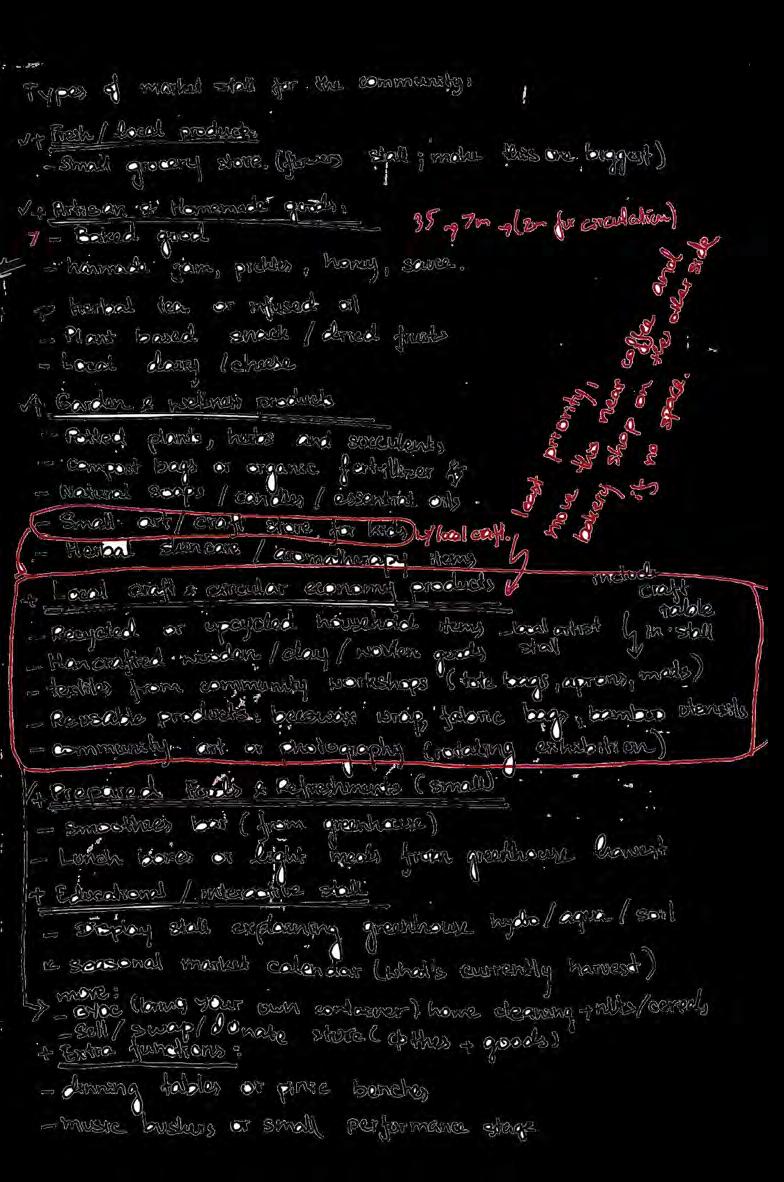 Types of market stall for the community:
✓+ Fresh / local products
- Small grocery store. (flowers stall ; make this one biggest)
✓+ Artisan or Homemade goods:
35 → 7m → (2m for circulation)
- Baked good
- hanmade jam, pickles, honey, sauce.
- Herbal tea or infused oil
- Plant based snack / dried fruits
- Local dairy / cheese
+ Garden & wellness products
- Potted plants, herbs and succulents
- Compost bags or organic fertilizer
- Natural soaps / candles / essential oils
- Small art / craft store for kids
w/ local craft.
- Herbal skincare / aromatherapy items
least priority,
move this near coffee and
bakery shop on the other side
if no space.
+ Local craft & circular economy products
include craft table in stall
- Recycled or upcycled household items - local artist stall
- Hancrafted wooden / clay / woven goods
- textiles from community workshops (tote bags, aprons, mats)
- Reusable products: beeswax wrap, fabric bags, bamboo utensils
- Community art or photography (rotating exhibition)
+ Prepared Foods & Refreshments (small)
- Smoothies bar (from greenhouse)
- Lunch boxes or light meals from greenhouse harvest
+ Educational / interactive stall
- Display stall explaining greenhouse hydro / aqua / soil
- seasonal market calendar (what's currently harvest)
more:
- BYOC (bring your own container) home cleaning + nuts/cereals
- Sell / swap / donate store (clothes + goods)
+ Extra functions:
- dinning tables or picnic benches
- music buskers or small performance stage